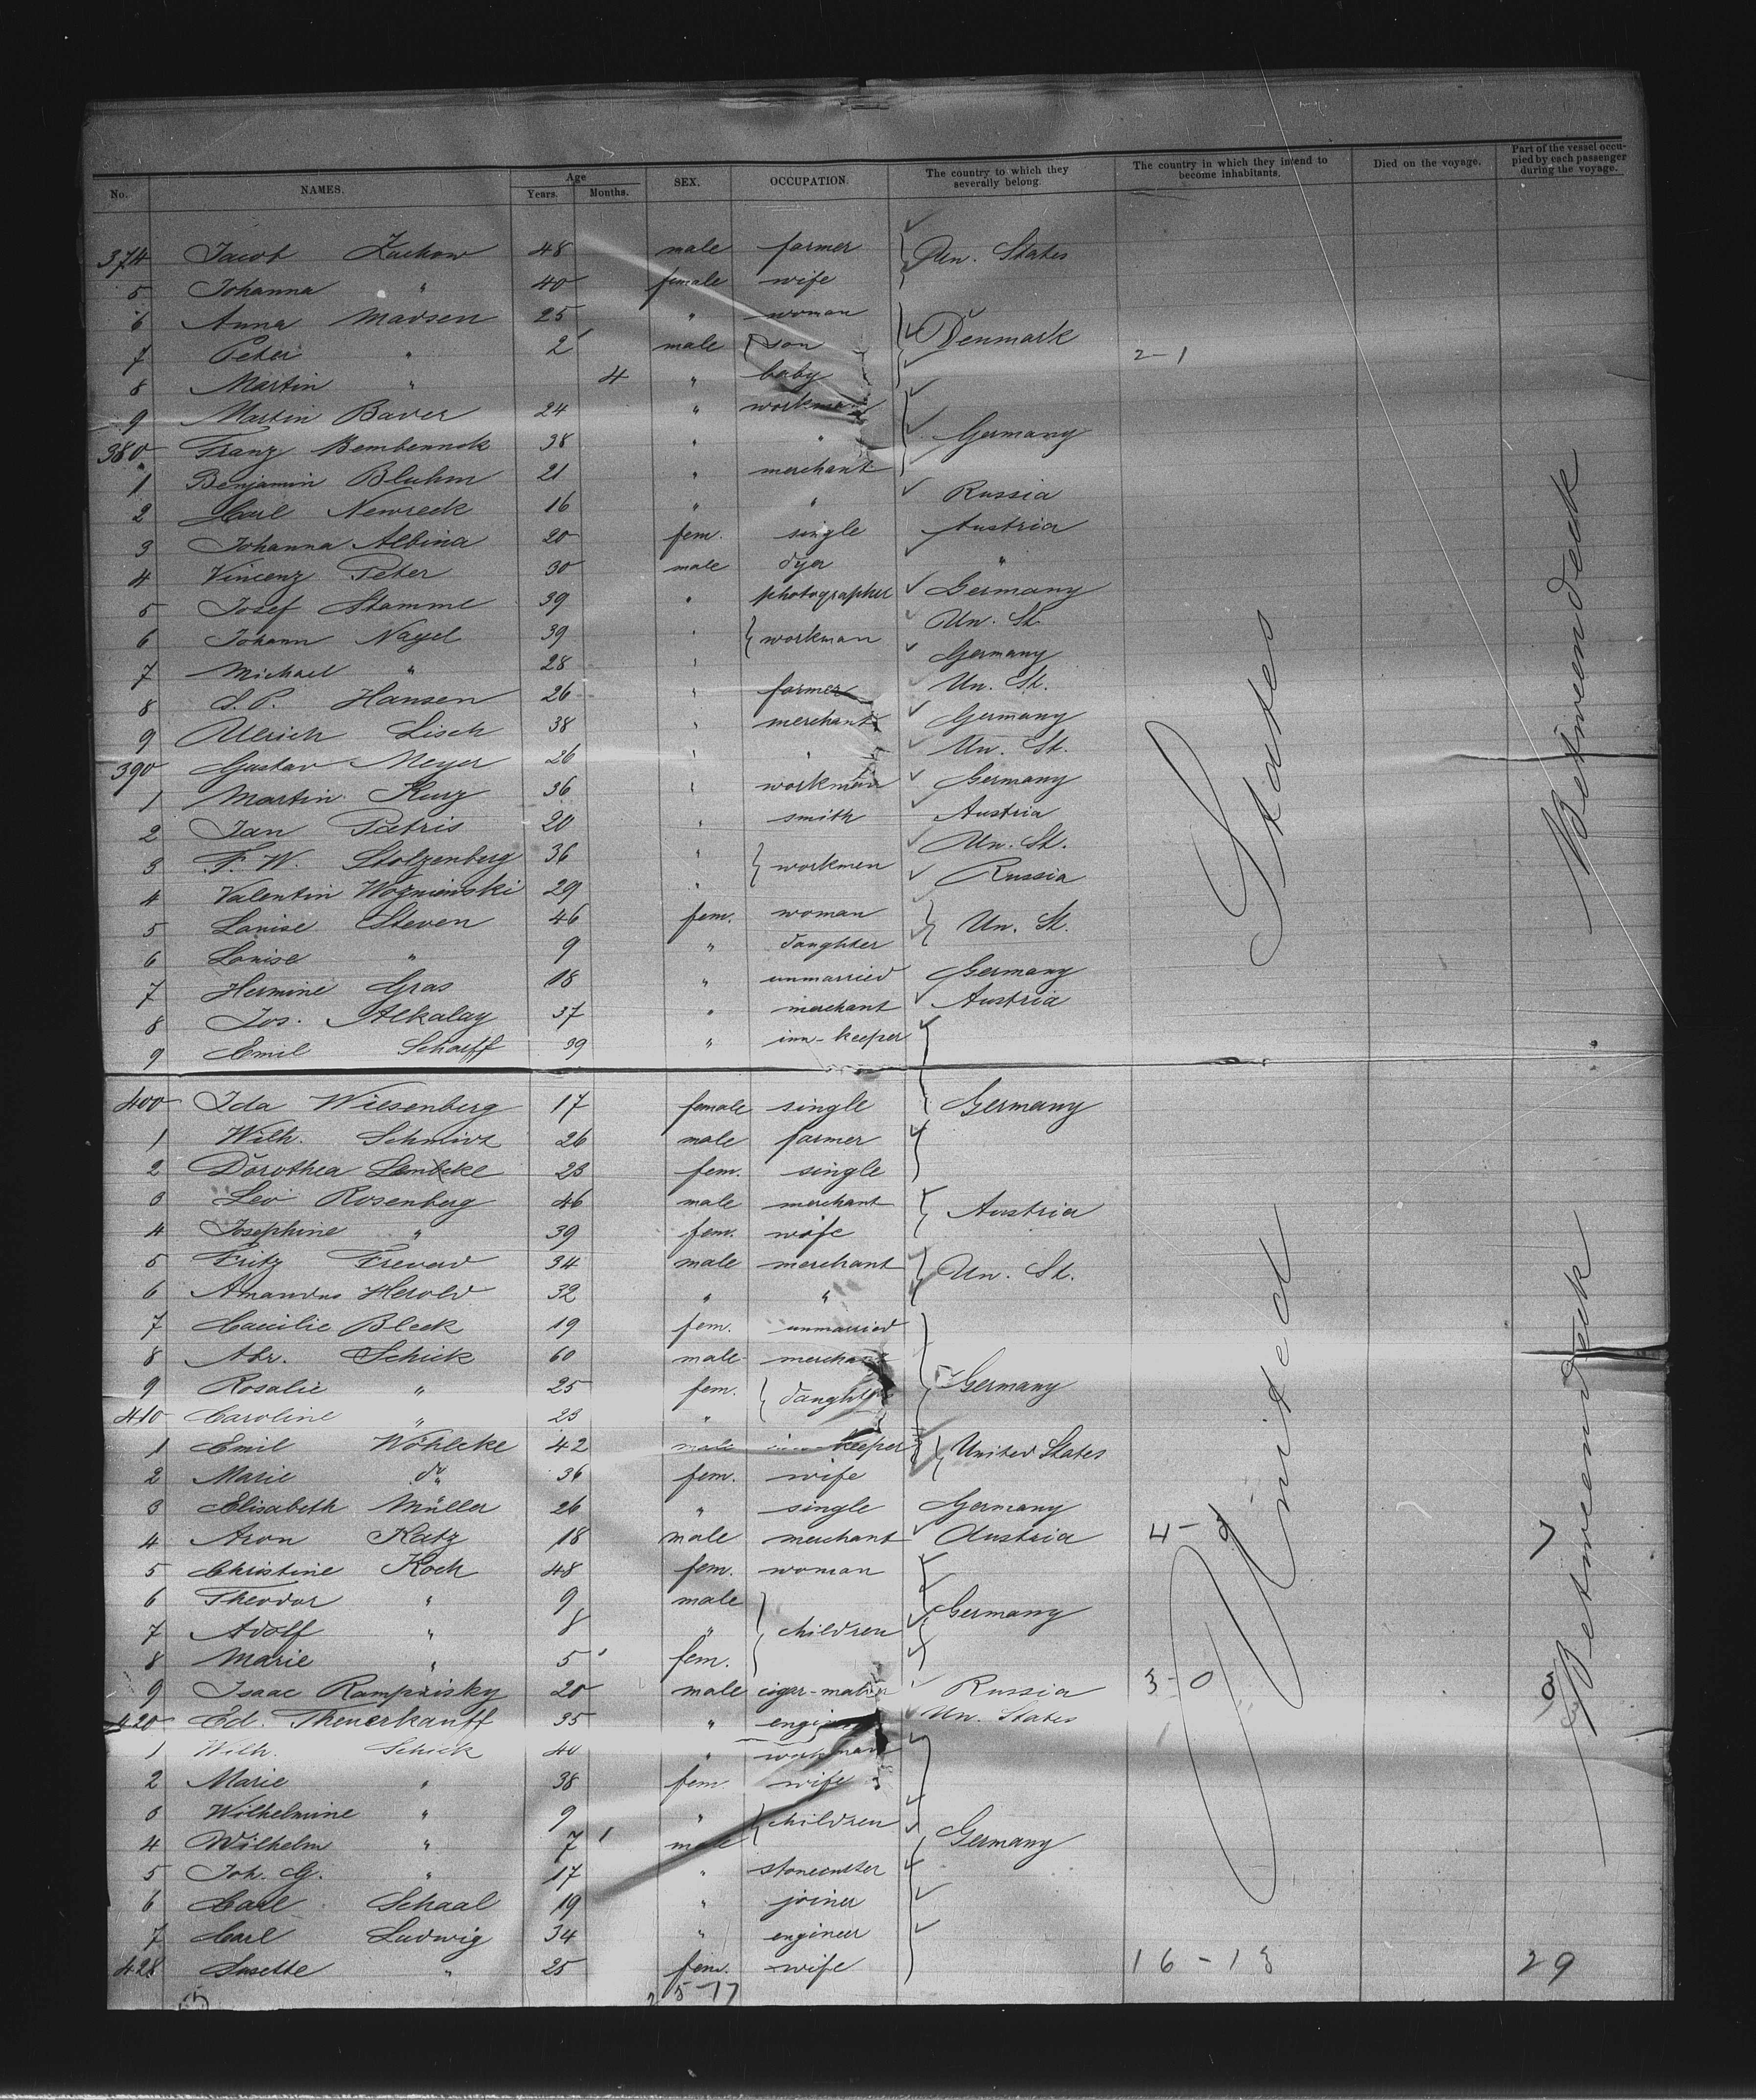 No. NAMES. Age Years. Months. SEX. OCCUPATION. The country to which they severally belong. The country in which they intend to become inhabitants. Died on the voyage. Part of the vessel occupied by each passenger during the voyage.
374 Jacob Zachow 48 male farmer Un. States
5 Johanna " 40 female wife
6 Anna Madsen 25 " woman
7 Peter " 2 male son Denmark 2-1
8 Martin " 4 " baby
9 Martin Baver 24 " workman
380 Franz Bembennok 38 " " Germany
1 Benjamin Bluhm 21 " merchant
2 Carl Newreck 16 " " Russia
3 Johanna Albina 20 fem. single Austria
4 Vincenz Peter 30 male dyer "
5 Josef Stamme 39 " photographer Germany
6 Johann Nagel 39 " workman Un. St.
7 Michael " 28 " Germany
8 S. P. Hansen 26 " farmer Un. St.
9 Ulrich Lisch 38 " merchant Germany
390 Gustav Meyer 26 " " Un. St.
1 Martin Kurz 36 " workman Germany
2 Jan Patris 20 " smith Austria
3 F. W. Stolzenberg 36 " workmen Un. St.
4 Valentin Wozniewski 29 " Russia
5 Louise Steven 46 fem. woman Un. St.
6 Louise " 9 " daughter
7 Hermine Gras 18 " unmarried Germany
8 Jos. Alkalay 37 " merchant Austria
9 Emil Scharff 39 " inn-keeper
400 Ida Wiesenberg 17 female single Germany
1 Wilh. Schmidt 26 male farmer
2 Dorothea Lembcke 23 fem. single
3 Leo Rosenberg 46 male merchant Austria
4 Josephine " 39 fem. wife
5 Fritz Frevert 34 male merchant Un. St.
6 Amandus Herold 32 " "
7 Caecilie Bleck 19 fem. unmarried
8 Abr. Schick 60 male merchant
9 Rosalie " 25 fem. daught Germany
410 Caroline " 23 "
1 Emil Wöhlcke 42 male inn-keeper United States
2 Marie do 36 fem. wife
3 Elisabeth Müller 26 " single Germany
4 Aron Katz 18 male merchant Austria 4-
5 Christine Koch 48 fem. woman
6 Theodor " 9 male
7 Adolf " 8 " children Germany
8 Marie " 5 fem.
9 Isaac Rampinsky 20 male cigar-maker Russia 3-0
420 Ed. Theuerkauff 35 " engineer Un. States
1 Wilh. Schick 40 " workman
2 Marie " 38 fem wife
3 Wilhelmine " 9 " children
4 Wilhelm " 7 male Germany
5 Joh. G. " 17 " stonecutter
6 Carl Schaal 19 " joiner
7 Carl Ludwig 34 " engineer
428 Susette " 25 fem. wife 16-13 29
5-17
United States
Betweendeck
Betweendeck